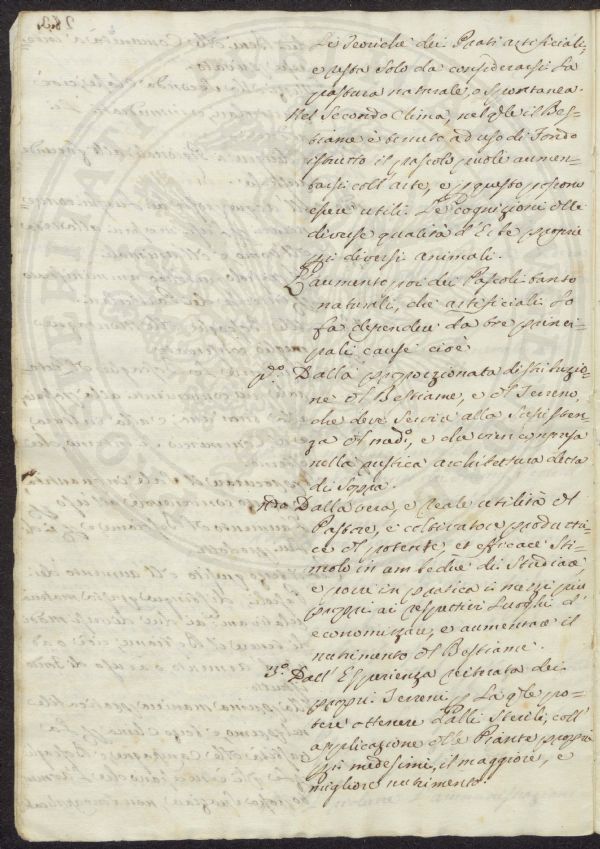 le Teoriche dei Prati artificiali
e resta solo da considerarsi la
pastura naturale, o spontanea.
Nel Secondo Clima, nel qle il Bes-
tiame è tenuto ad uso di Fondo
istrutto il pascolo puole aumen-
tarsi coll'arte, e p questo possono
esser utili le cognizioni delle
diverse qualità d'Erbe proprie
pei diversi animali.
L'aumento poi dei Pascoli tanto
naturali, che artificiali lo
fa dependere da tre princi-
pali cause cioè
po. Dalla proporzionata distribuzio-
ne del Bestiame, e del Terreno,
che deve servire alla sussisten-
za del med.o, e che vien compresa
nella rustica architettura detta
di sopra.
2do Dalla vera, e reale utilità del
Pastore, e coltivatore produttri-
ce del potente, et efficace sti-
molo in ambedue di studiare
e porre in pratica i mezzi più
propri ai respettivi Luoghi d'
economizzare, e aumentare il
nutrimento del Bestiame.
3.o Dall'Esperienza reiterata dei
propri Terreni p la qle po-
tere ottenere dalli sterili, coll'
applicazione delle Piante proprie
pei medesimi, il maggiore, e
migliore nutrimento.